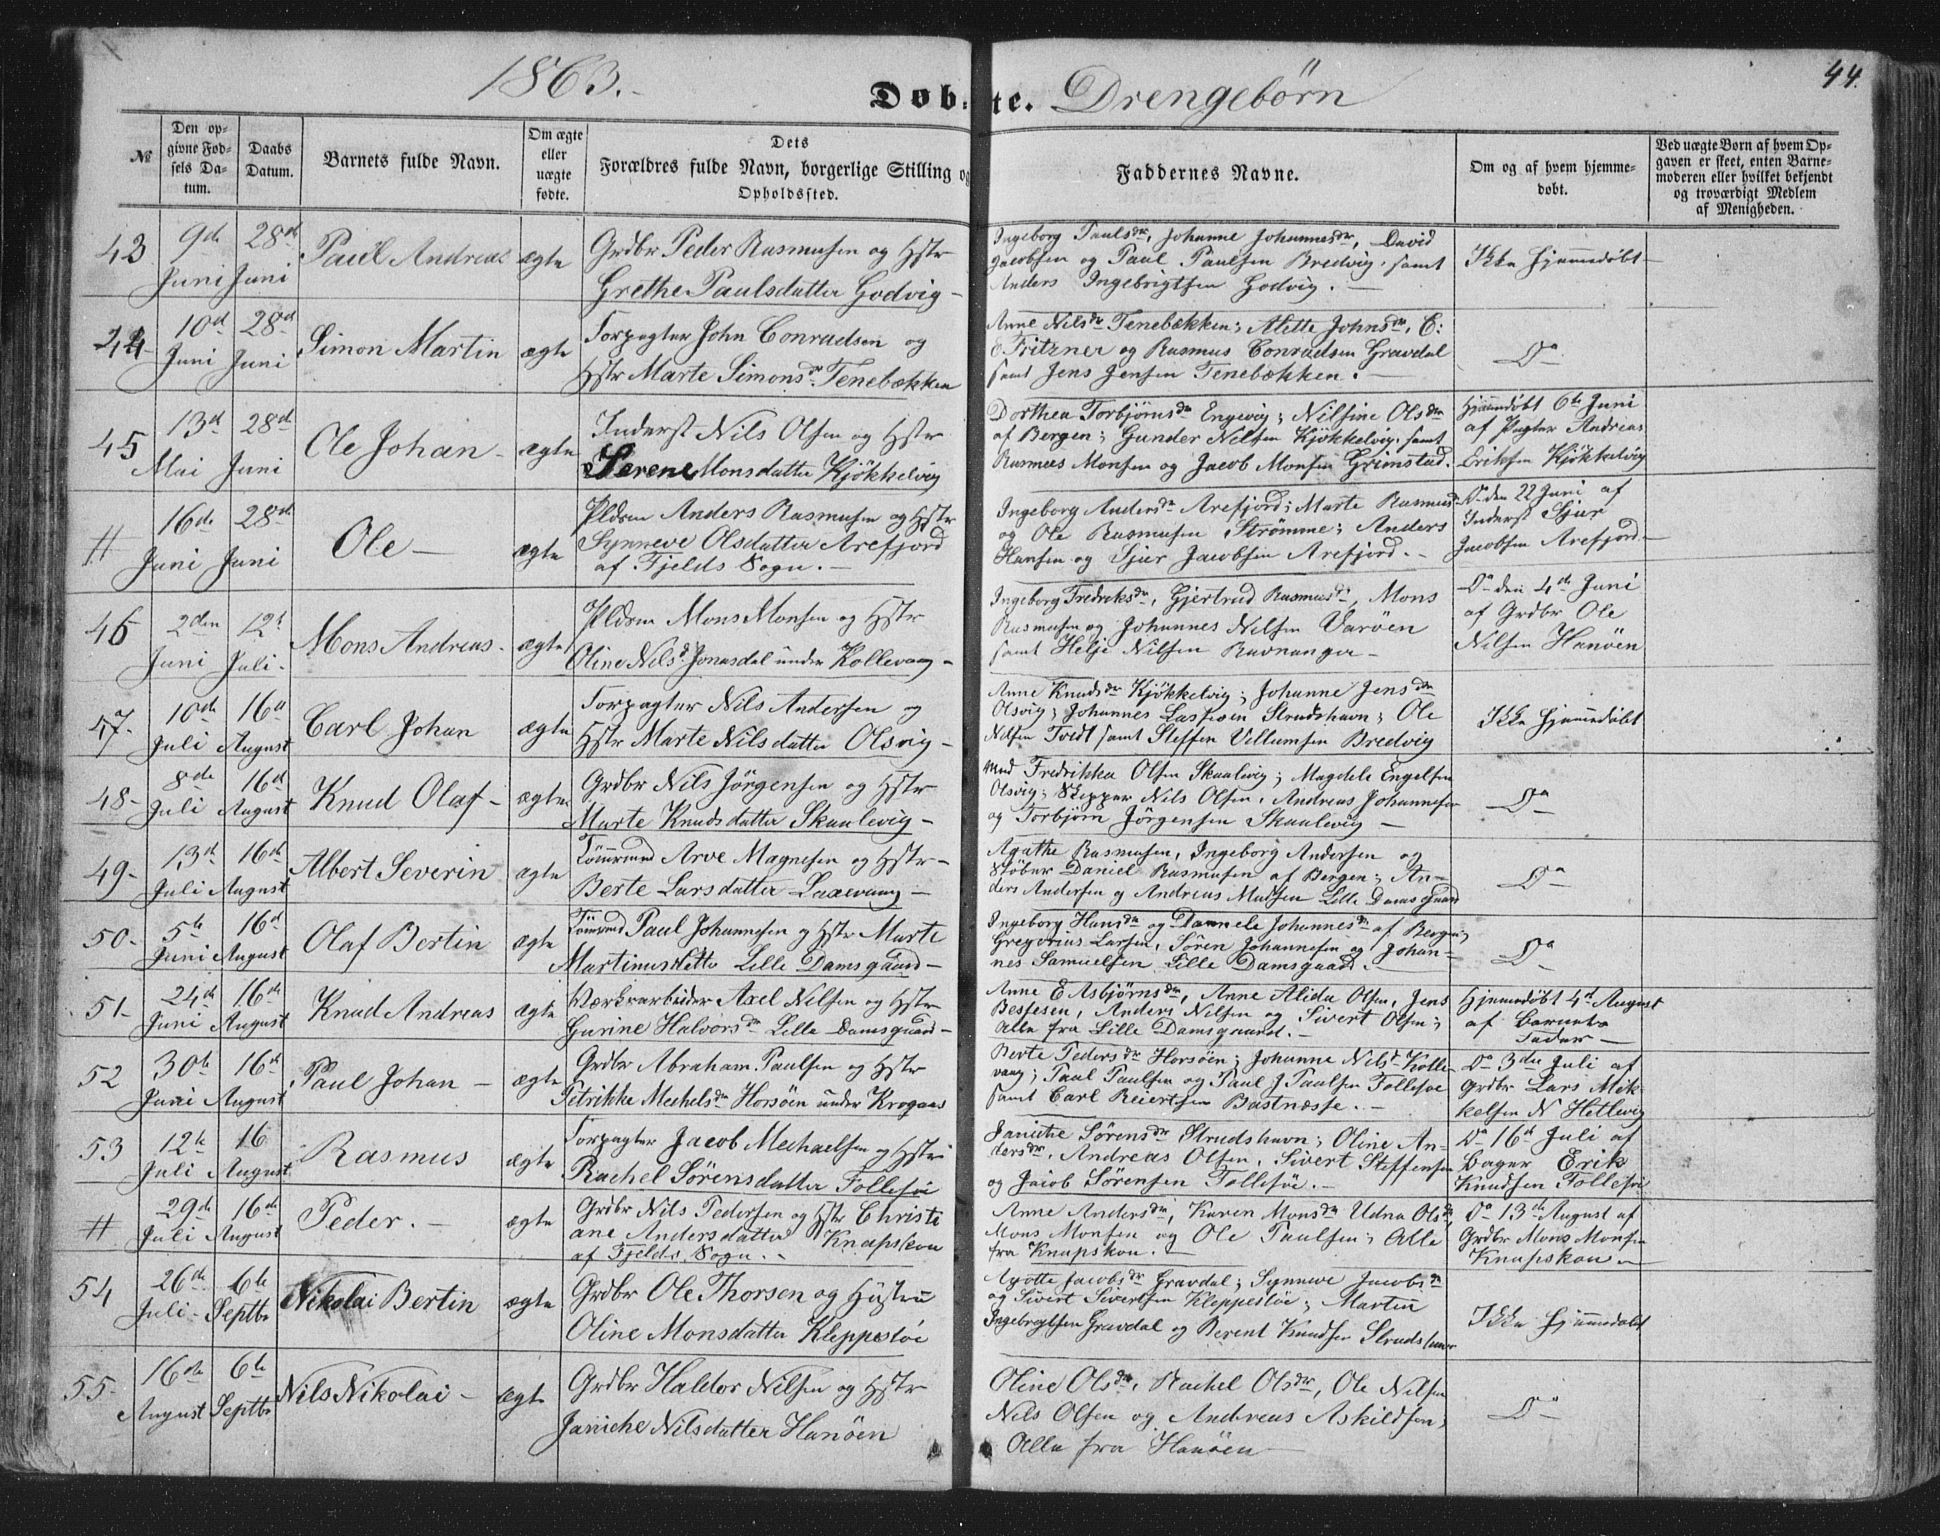 1863.
Døbte. Drengebørn
44.
№
Den opgivne Fødsels Datum.
Daabs Datum.
Barnets fulde Navn.
Om ægte eller uægte fødte.
Dets Forældres fulde Navn, borgerlige Stilling og Opholdssted.
Faddernes Navne.
Om og af hvem hjemmedøbt.
Ved uægte Børn af hvem Opgaven er skeet, enten Barnemoderen eller hvilket bekjendt og troværdigt Medlem af Menigheden.
43
9de Juni
28de Juni
Paul Andreas
ægte
Grdbr Peder Rasmusen og Hstr
Grethe Paulsdatter Godvig -
Ingeborg Paulsdr, Johanne Johannesdr, David
Jacobsen og Paul Paulsen Bredvig, samt
Anders Ingebrigtsen Godvig.
Ikke hjemmedøbt
44
10d Juni
28d Juni
Simon Martin
ægte
Forpagter John Conradsen og
Hstr Marte Simonsdr Tenebækken
Anne Nilsdr Tenebækken; Alette Johnsdr, C:
Fritzner og Rasmus Conradsen Gravdal
samt Jens Jensen Tenebækken.
Do
45
13d Mai
28d Juni
Ole Johan -
ægte
Inderst Nils Olsen og Hstr
Serene Monsdatter Kjøkkelvig
Dorthea Torbjørnsdr Engevig; Nilsine Olsdr
af Bergen; Gunder Nilsen Kjøkkelvig, samt
Rasmus Monsen og Jacob Monsen Grimstad.
Hjemmdøbt 6te Juni
af Pagter Andreas
Eriksen Kjøkkelvig
"
16de Juni
28d Juni
Ole -
ægte
Pldsm Anders Rasmusen og Hstr
Synneve Olsdatter Arefjord
af Fjelds Sogn. -
Ingeborg Andersdr Arefjord; Marte Rasmusdr
og Ole Rasmusen Strømme; Anders
Hansen og Sjur Jacobsen Arefjord. -
Do den 22 Juni af
Inderst Sjur
Jacobsen Arefjord. -
46
2den Juni
12t Juli -
Mons Andreas -
ægte
Pldsm Mons Monsen og Hstr
Oline Nilsd. Jonasdal under Kollevaag -
Ingeborg Fredriksdr, Gjertrud Rasmusdr, Mons
Rasmusen og Johannes Nilsen Varöen
samt Helje Nilsen Ravnanger -
Do den 4de Juni
af Grdbr Ole
Nilsen Hanöen
47 -
10de Juli
16d August
Carl Johan
ægte
Forpagter Nils Andersen og
Hstr Marte Nilsdatter Olsvig -
Anne Knudsdr Kjøkkelvig; Johanne Jensdr
Olsvig; Johannes Lassesen Strudshavn; Ole
Nilsen Tvedt samt Steffen Villumsen Bredvig
Ikke hjemmedøbt
48 -
8de Juli
16d August
Knud Olaf -
ægte
Grdbr Nils Jörgensen og Hstr
Marte Knudsdatter Skaalevig -
Mad Fredrikke Olsen Skaalevig; Magdele Engelsen
Olsvig; Skipper Nils Olsen, Andreas Johannesen
og Torbjørn Jörgensen Skaalevig -
Do
49 -
13d Juli
16de August
Albert Severin
ægte
Tømmermd Arve Magnesen og Hstr -
Berte Larsdatter Laxevaag -
Agathe Rasmusen, Ingeborg Andersen og
Støber Daniel Rasmusen af Bergen; An-
ders Andersen og Andreas Madsen Lille Damsgaard
Do
50 -
5te Juni
16d August
Olaf Bertin
ægte
Tømmrmd Paul Johannesen og Hstr Marte
Martinusdatter Lille Damsgaard -
Ingeborg Hansdr og Dannele Johannesdr af Bergen;
Gregorius Larsen, Sören Johannesen og Johan-
nes Samuelsen Lille Damsgaard. -
Do
51 -
24de Juni
16de August
Knud Andreas
ægte
Værksarbeider Axel Nilsen og Hstr
Gurine Halvorsdr Lille Damsgaard -
Anne E Asbjørnsdr, Anne Alida Olsen, Jens
Bessesen, Anders Nilsen og Sivert Olsen;
Alle fra Lille Damsgaard. -
Hjemmedøbt 4de August
af Barnets
Fader -
52
30te Juni
16de August
Paul Johan -
ægte
Grdbr Abraham Paulsen og Hstr
Petrikke Mechelsdr Horsöen under Krogaas
Berte Pedersdr Horsöen; Johanne Nilsd Kolle-
vaag; Paul Paulsen og Paul J Paulsen Follesøe
samt Carl Reiertsen Bastnæsse. -
Do 3die Juli af
Grdbr Lars Mik-
kelsen N Hetlevig
53
12te Juli
16 August
Rasmus
ægte
Forpagter Jacob Mechaelsen og Hstr
Rachel Sörensdatter Follesøe
Janiche Sörensdr Strudshavn; Oline An-
dersdr, Andreas Olsen, Sivert Steffensen
og Jacob Sörensen Follesøe. -
Do 16d Juli af
Bager Erik
Knudsen Follesøe
"
29de Juli
16de August
Peder. -
ægte
Grdbr Nils Pedersen og Hstr Christi
ane Andersdatter Knapskou
af Fjelds Sogn. -
Anne Andersdr, Karen Monsdr Udna Olsdr
Mons Monsen og Ole Paulsen; Alle
fra Knapskou. -
Do 13de August af
Grdbr Mons Monsen
Knapskou -
54
26de Juli -
6te Septbr
Nikolai Bertin
ægte
Grdbr Ole Thorsen og Hustru
Oline Monsdatter Kleppestøe
Ayotte Jacobsdr Gravdal; Synneve Jacobsdr
og Sivert Sivertsen Kleppestøe; Martin
Ingebrigtsen Gravdal og Berent Knudsen Strudshavn
Ikke hjemmedøbt
55 -
16de August
6te Septbr
Nils Nikolai -
ægte
Grdbr Haldor Nilsen og Hstr
Janiche Nilsdatter Hanöen
Oline Olsdr, Rachel Olsdr, Ole Nilsen
Nils Olsen og Andreas Askildsen;
Alle fra Hanöen -
Do